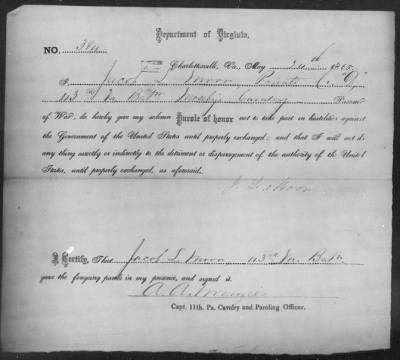 Department of Virginia.
NO.
Charlottesville, Va., May 1865.
I Jacob L Moon Private Co. "D"
43rd Va Batn Mosby's Cavalry Prisoner
of War, do hereby give my solemn Parole of honor not to take part in hostilities against
the Government of the United States until properly exchanged; and that I will not do
any thing directly or indirectly to the detriment or disparagement of the authority of the United
States, until properly exchanged, as aforesaid.
J L Moon
I Certify, That Jacob L Moon, 43rd Va. Batn
gave the foregoing parole in my presence, and signed it.
Capt. 11th. Pa. Cavalry and Paroling Officer.